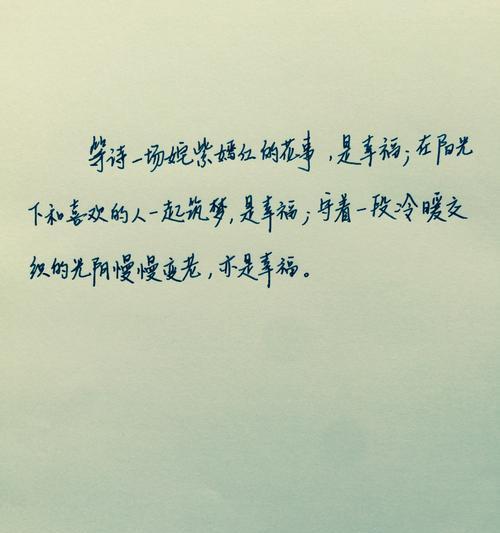 等诗一场姹紫嫣红的花事，是幸福；在阳光
下和喜欢的人一起筑梦，是幸福；守着一段冷暖交
织的光阴慢慢变老，亦是幸福。